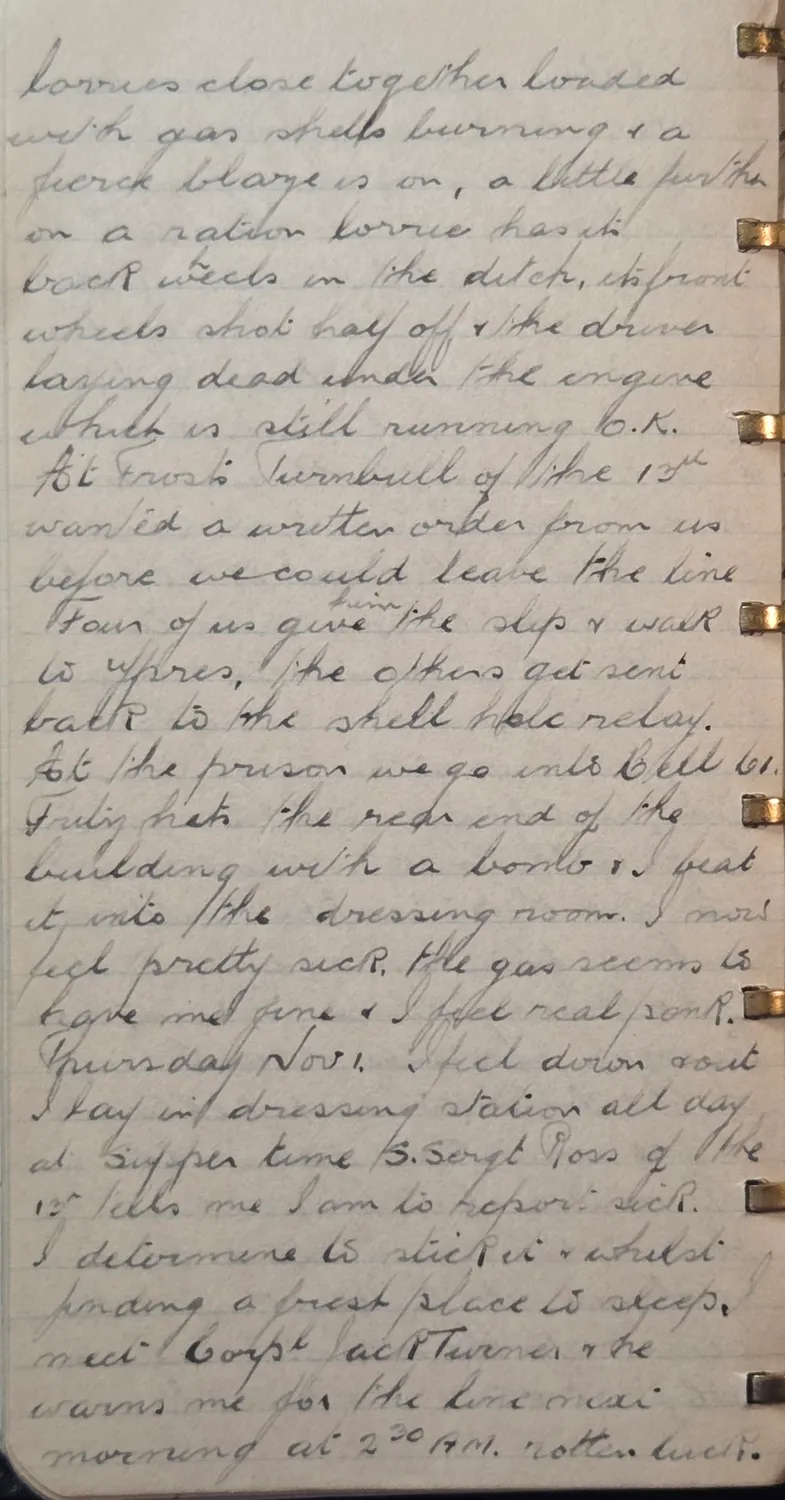 lorries close together loaded
with gas shells burning & a
fierce blaze is on, a little further
on a ration lorrie has its
back wheels in the ditch, its front
wheels shot half off & the driver
laying dead under the engine
which is still running O.K.
At Frosts Turnbull of the 13th
wanted a written order from us
before we could leave the line
Four of us give him the slip & walk
to Ypres, the others get sent
back to the shell hole relay.
At the prison we go into Cell 61.
Fritz hits the rear end of the
building with a bomb & I beat
it into the dressing room. I now
feel pretty sick, the gas seems to
have me fine & I feel real punk.
Thursday Nov 1. I feel down & out
I lay in dressing station all day
at supper time S. Sergt Ross of the
1st tells me I am to report sick.
I determine to stick it & whilst
finding a fresh place to sleep, I
meet Corpl Jack Turner & he
warns me for the line next
morning at 2 30 A.M. rotten luck.